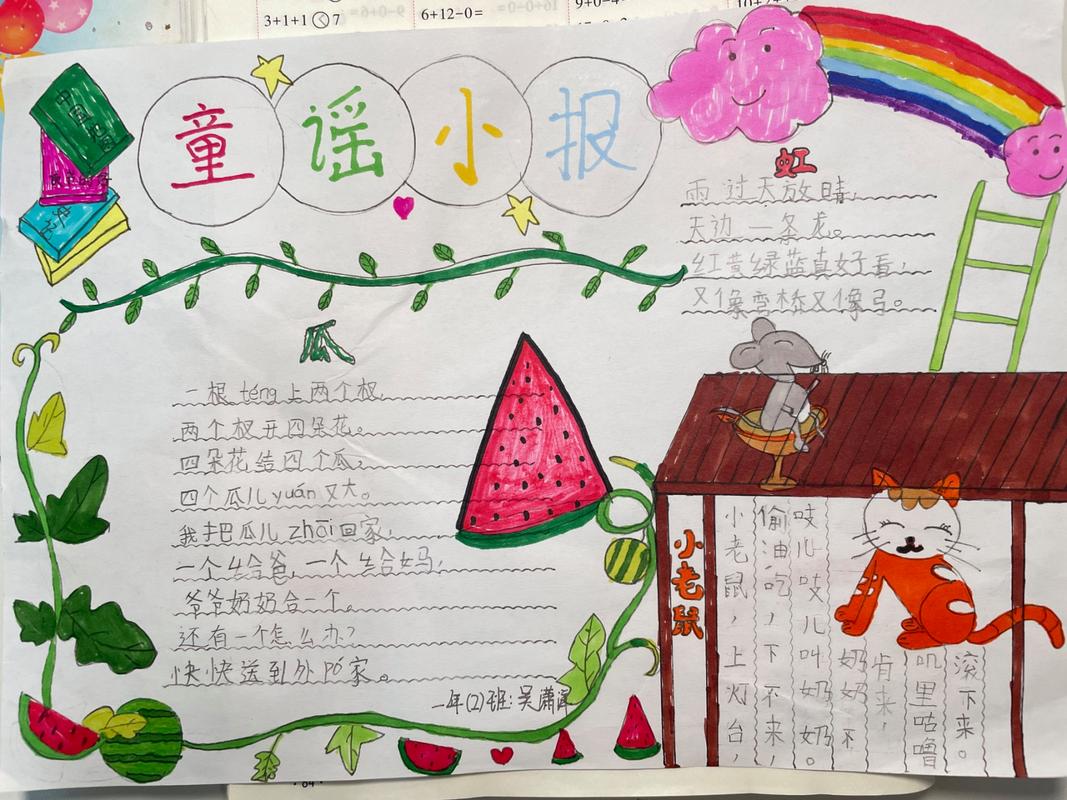 3+1+1<7
6+12-0=
童谣小报
虹
雨过天放晴，
天边一条龙。
红黄绿蓝真好看，
又像弯桥又像弓。
瓜
一根téng上两个杈，
两个杈开四朵花。
四朵花结四个瓜，
四个瓜儿yuán又大。
我把瓜儿zhāi回家，
一个给爸，一个给妈，
爷爷奶奶合一个。
还有一个怎么办？
快快送到外pó家。
一年(2)班：吴潇
小老鼠
小老鼠，上灯台，
偷油吃，下不来，
吱儿吱儿叫奶奶。
奶奶不
肯来，
叽里咕噜
滚下来。